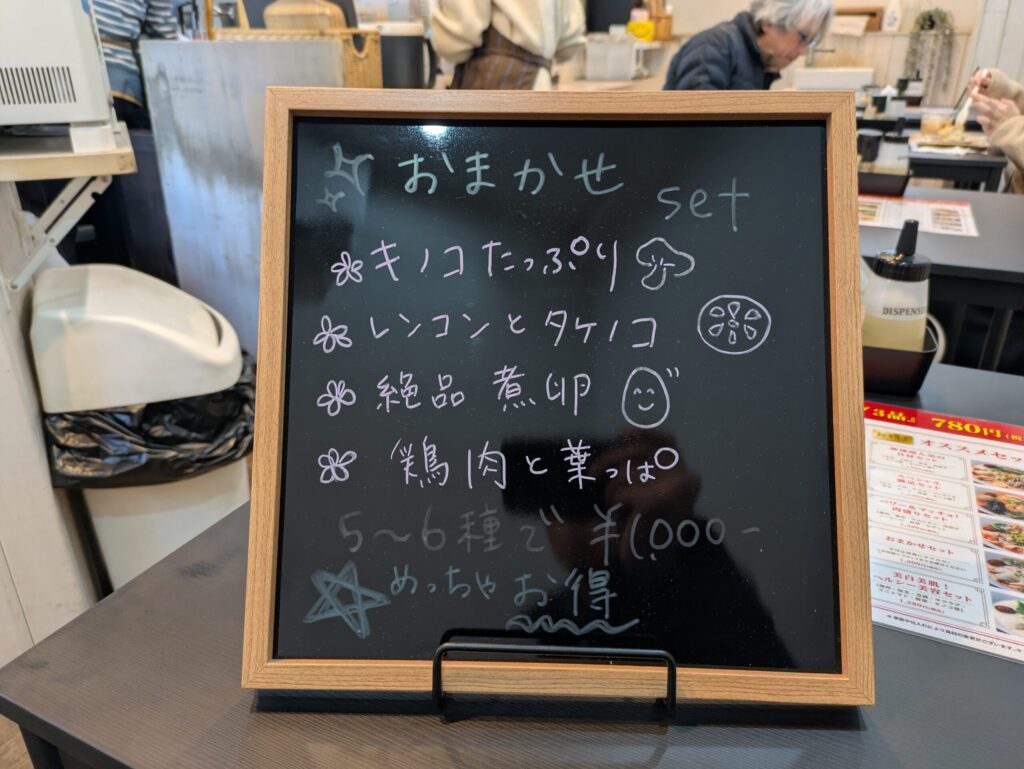 おまかせ set
キノコたっぷり
レンコンとタケノコ
絶品 煮卵
鶏肉と葉っぱ
5〜6種で ¥1,000-
めっちゃお得
DISPENSE
73品 780円
オススメセット
おまかせセット
美白美肌!
ヘルシー美容セット
1,280円